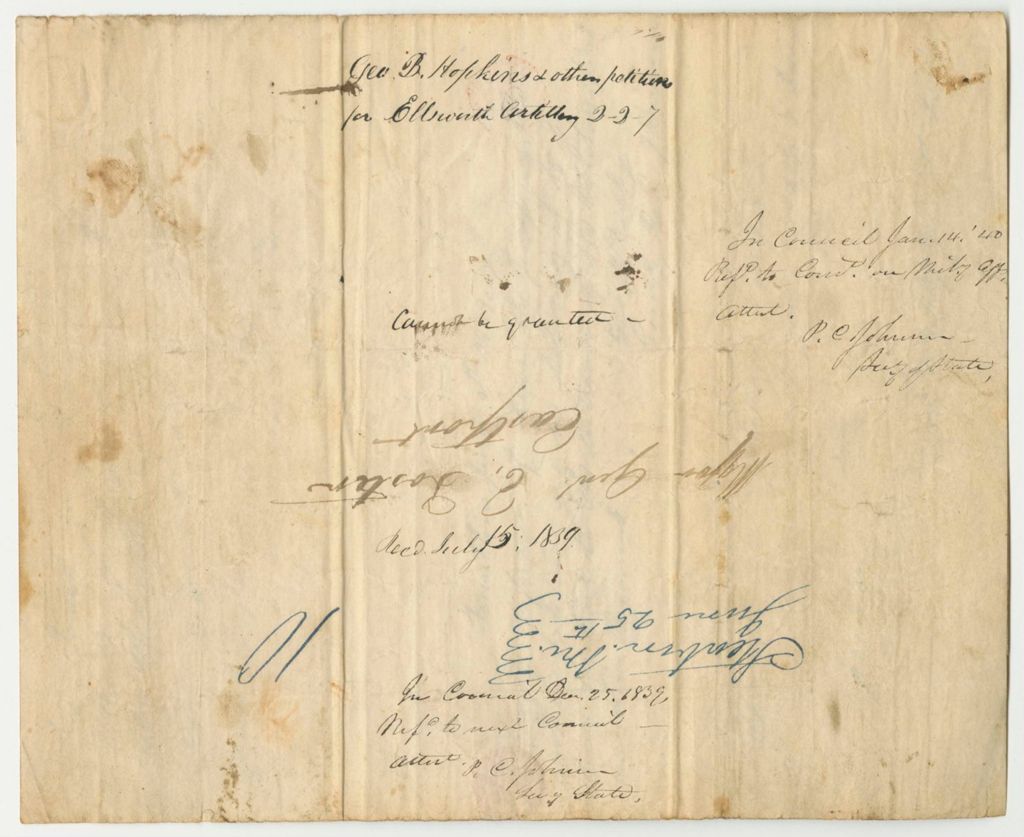 Geo. B. Hopkins & others petition
for Ellsworth Artillery 2-2-7
In Council Jan. 14. '40
Refd. to Comee. on Mily Aff.
attest.
P. C. Johnson
Secy of State,
Cannot be granted -
Major Genl E. Foster
Eastport
Recd. July 15, 1839.
Steuben. Me.
June 25th
10
In Council Dec. 25, 1839,
Refd. to next Council -
attest. P. C. Johnson
Secy State,